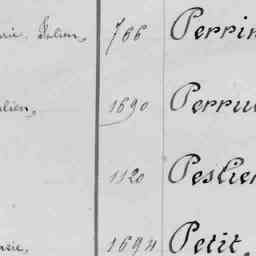 Julien, 766 Perrin
Julien, 1690 Perru
1120 Peslier
1694 Petit,